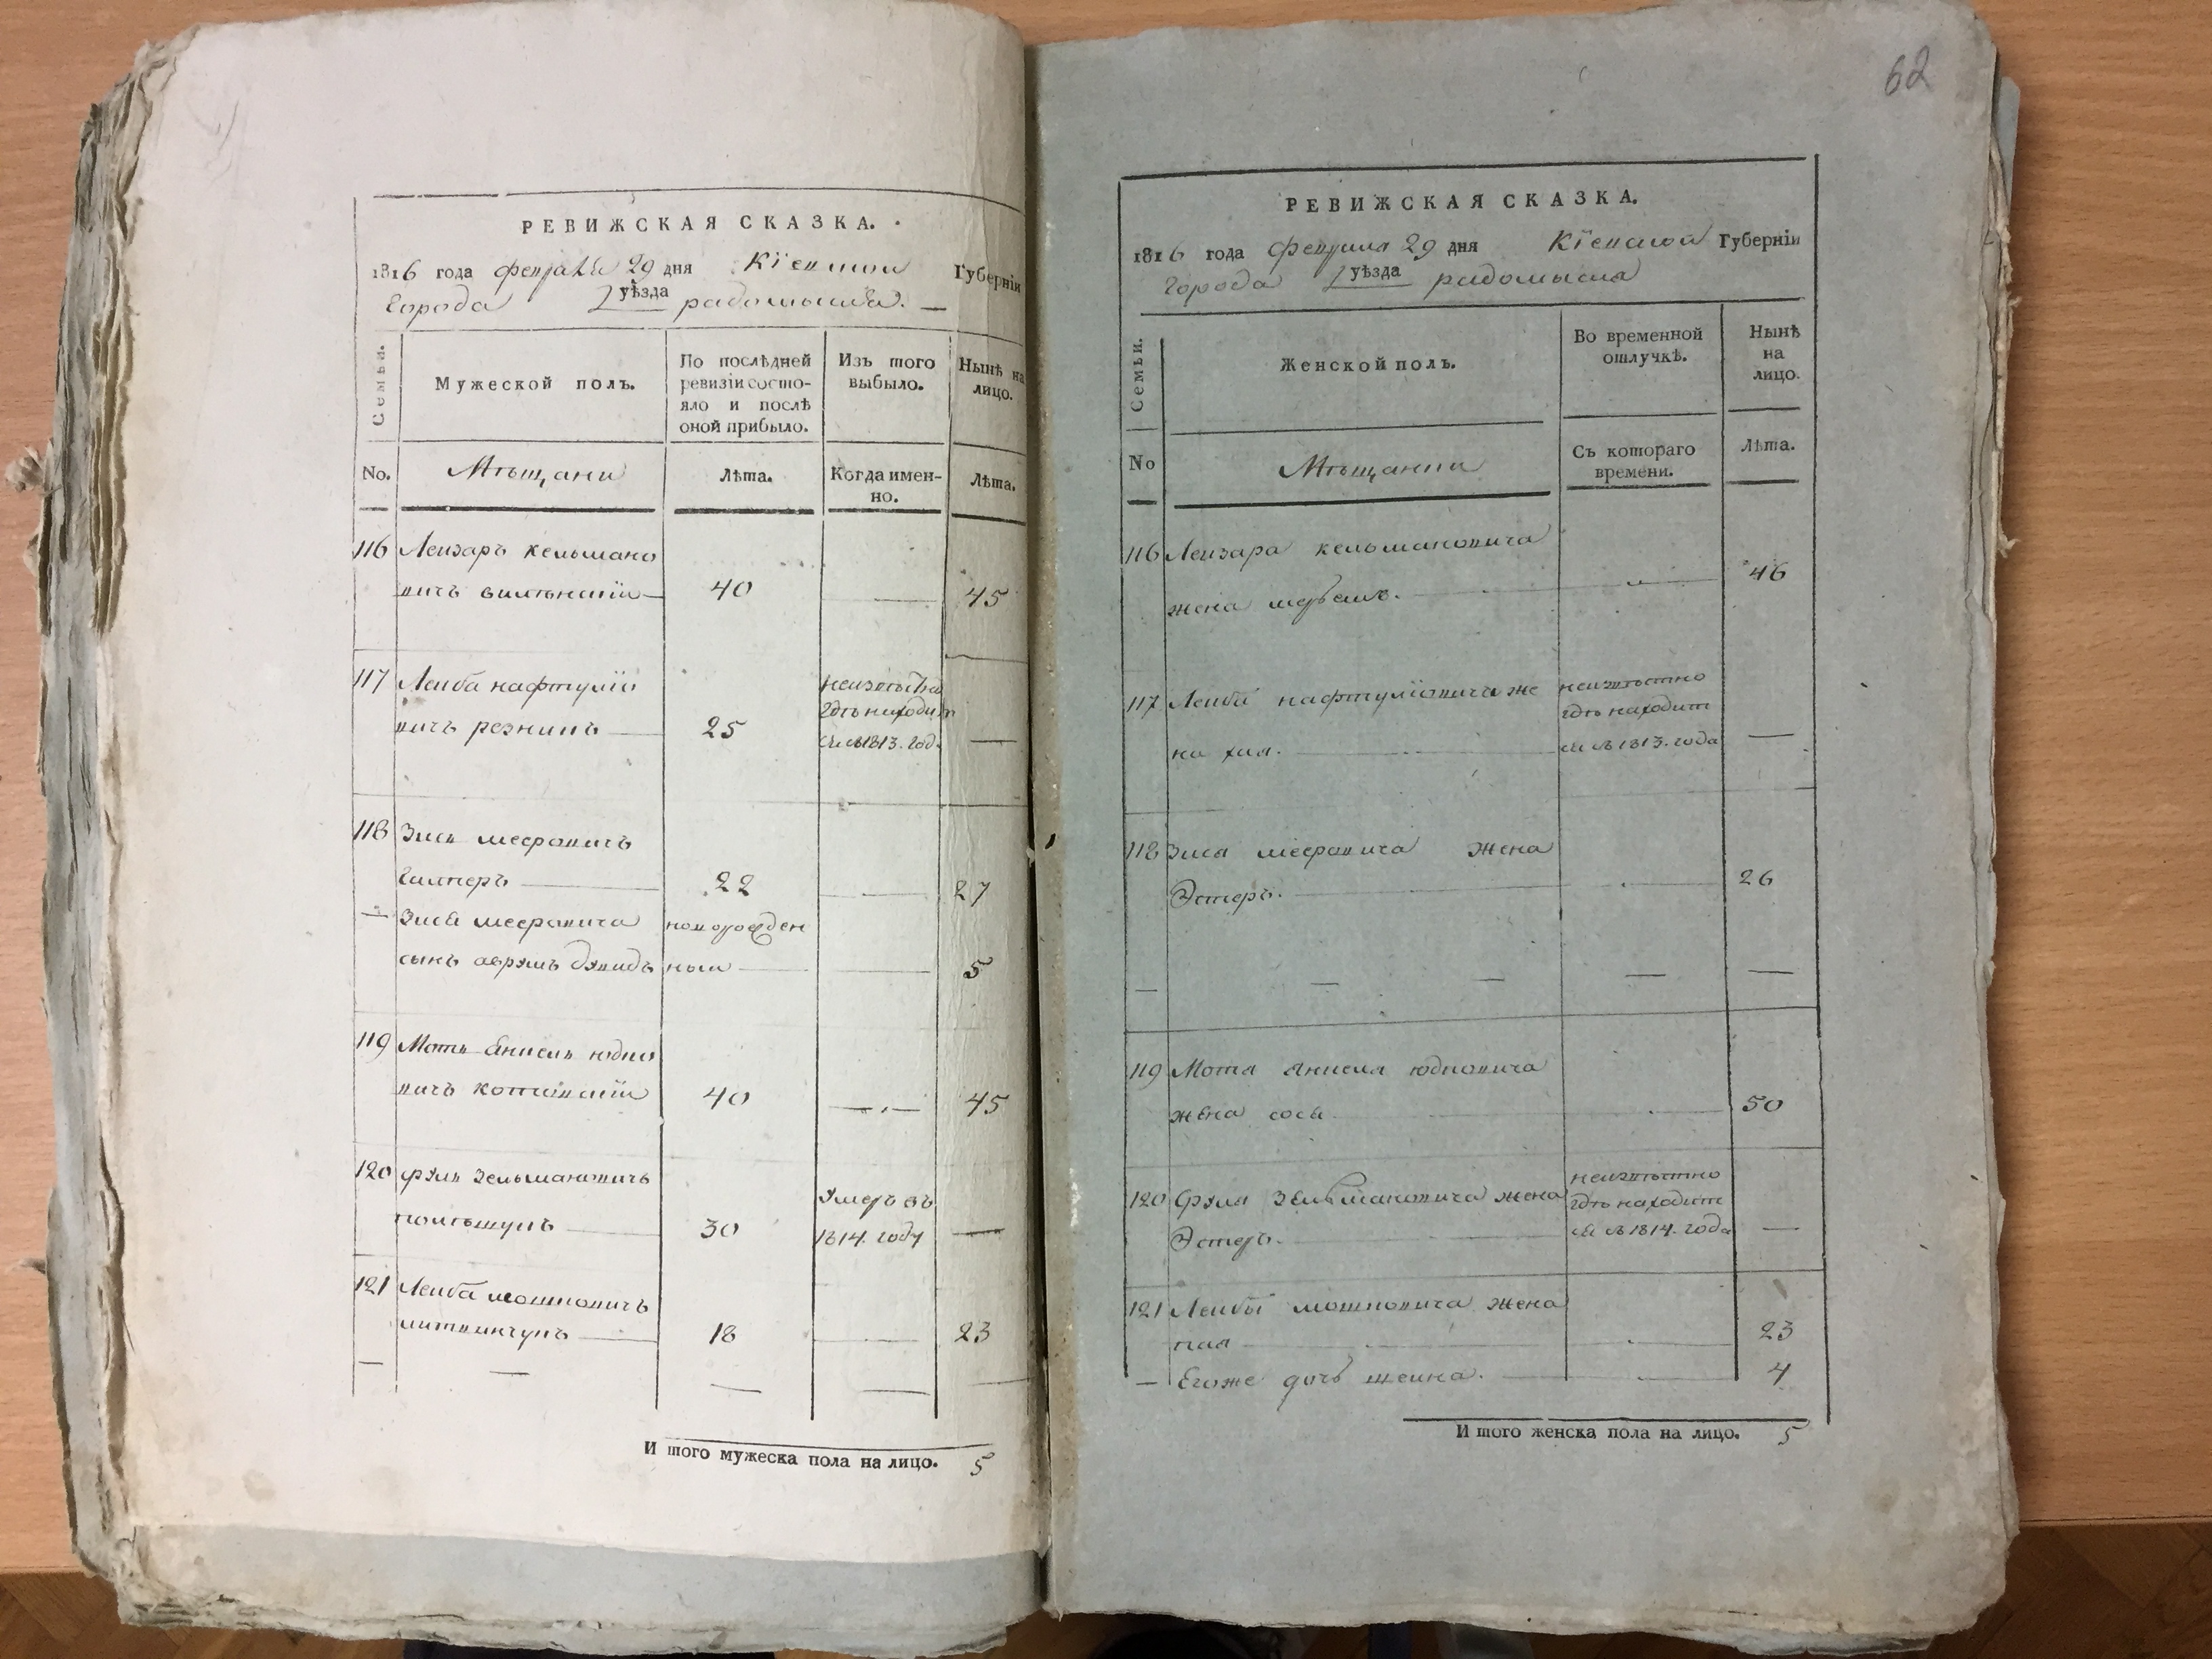 РЕВИЖСКАЯ СКАЗКА.
1816 года февраля 29 дня Кіевской Губерніи
Города уѣзда радомысла.
Семьи.
Мужеской полъ.
По послѣдней
ревизіи состо-
яло и послѣ
оной прибыло.
Изъ того
выбыло.
Нынѣ на
лицо.
No.
Мѣщани
Лѣта.
Когда имен-
но.
Лѣта.
116 Лейзаръ кельмано
вичъ вилѣнскій 40 — 45
117 Лейба нафтуліо
вичъ резникъ 25
неизвѣстно
гдѣ находит
ся съ 1813. года —
118 Зись мееровичъ
22 — 27
— Зися мееровича новорожден
сынъ аврумъ дувидъ ной — — 5
119 Моть Янкель юдко
вичъ 40 — 45
120 Сруль зельмановичъ
30
умеръ въ
1814. году —
121 Лейба мошковичъ
литвинчукъ 18 — 23
— — — — —
И того мужеска пола на лицо. 5
62
РЕВИЖСКАЯ СКАЗКА.
1816 года февраля 29 дня Кіевской Губерніи
Города уѣзда радомысла
Семьи.
Женской полъ.
Во временной
отлучкѣ.
Нынѣ
на
лицо.
No
Мѣщанки
Съ котораго
времени.
Лѣта.
116 Лейзара кельмановича
жена — 46
117 Лейбы нафтуліовича же
на хая.
неизвѣстно
гдѣ находит
ся съ 1813. года —
118 Зися мееровича жена
Эстеръ. — 26
— — — — —
119 Мотя Янкеля юдковича
жена сося — 50
120 Сруля зельмановича жена
Эстеръ.
неизвѣстно
гдѣ находит
ся съ 1814. года —
121 Лейбы мошковича жена
— 23
— Егоже дочь шейна. — 4
И того женска пола на лицо. 5